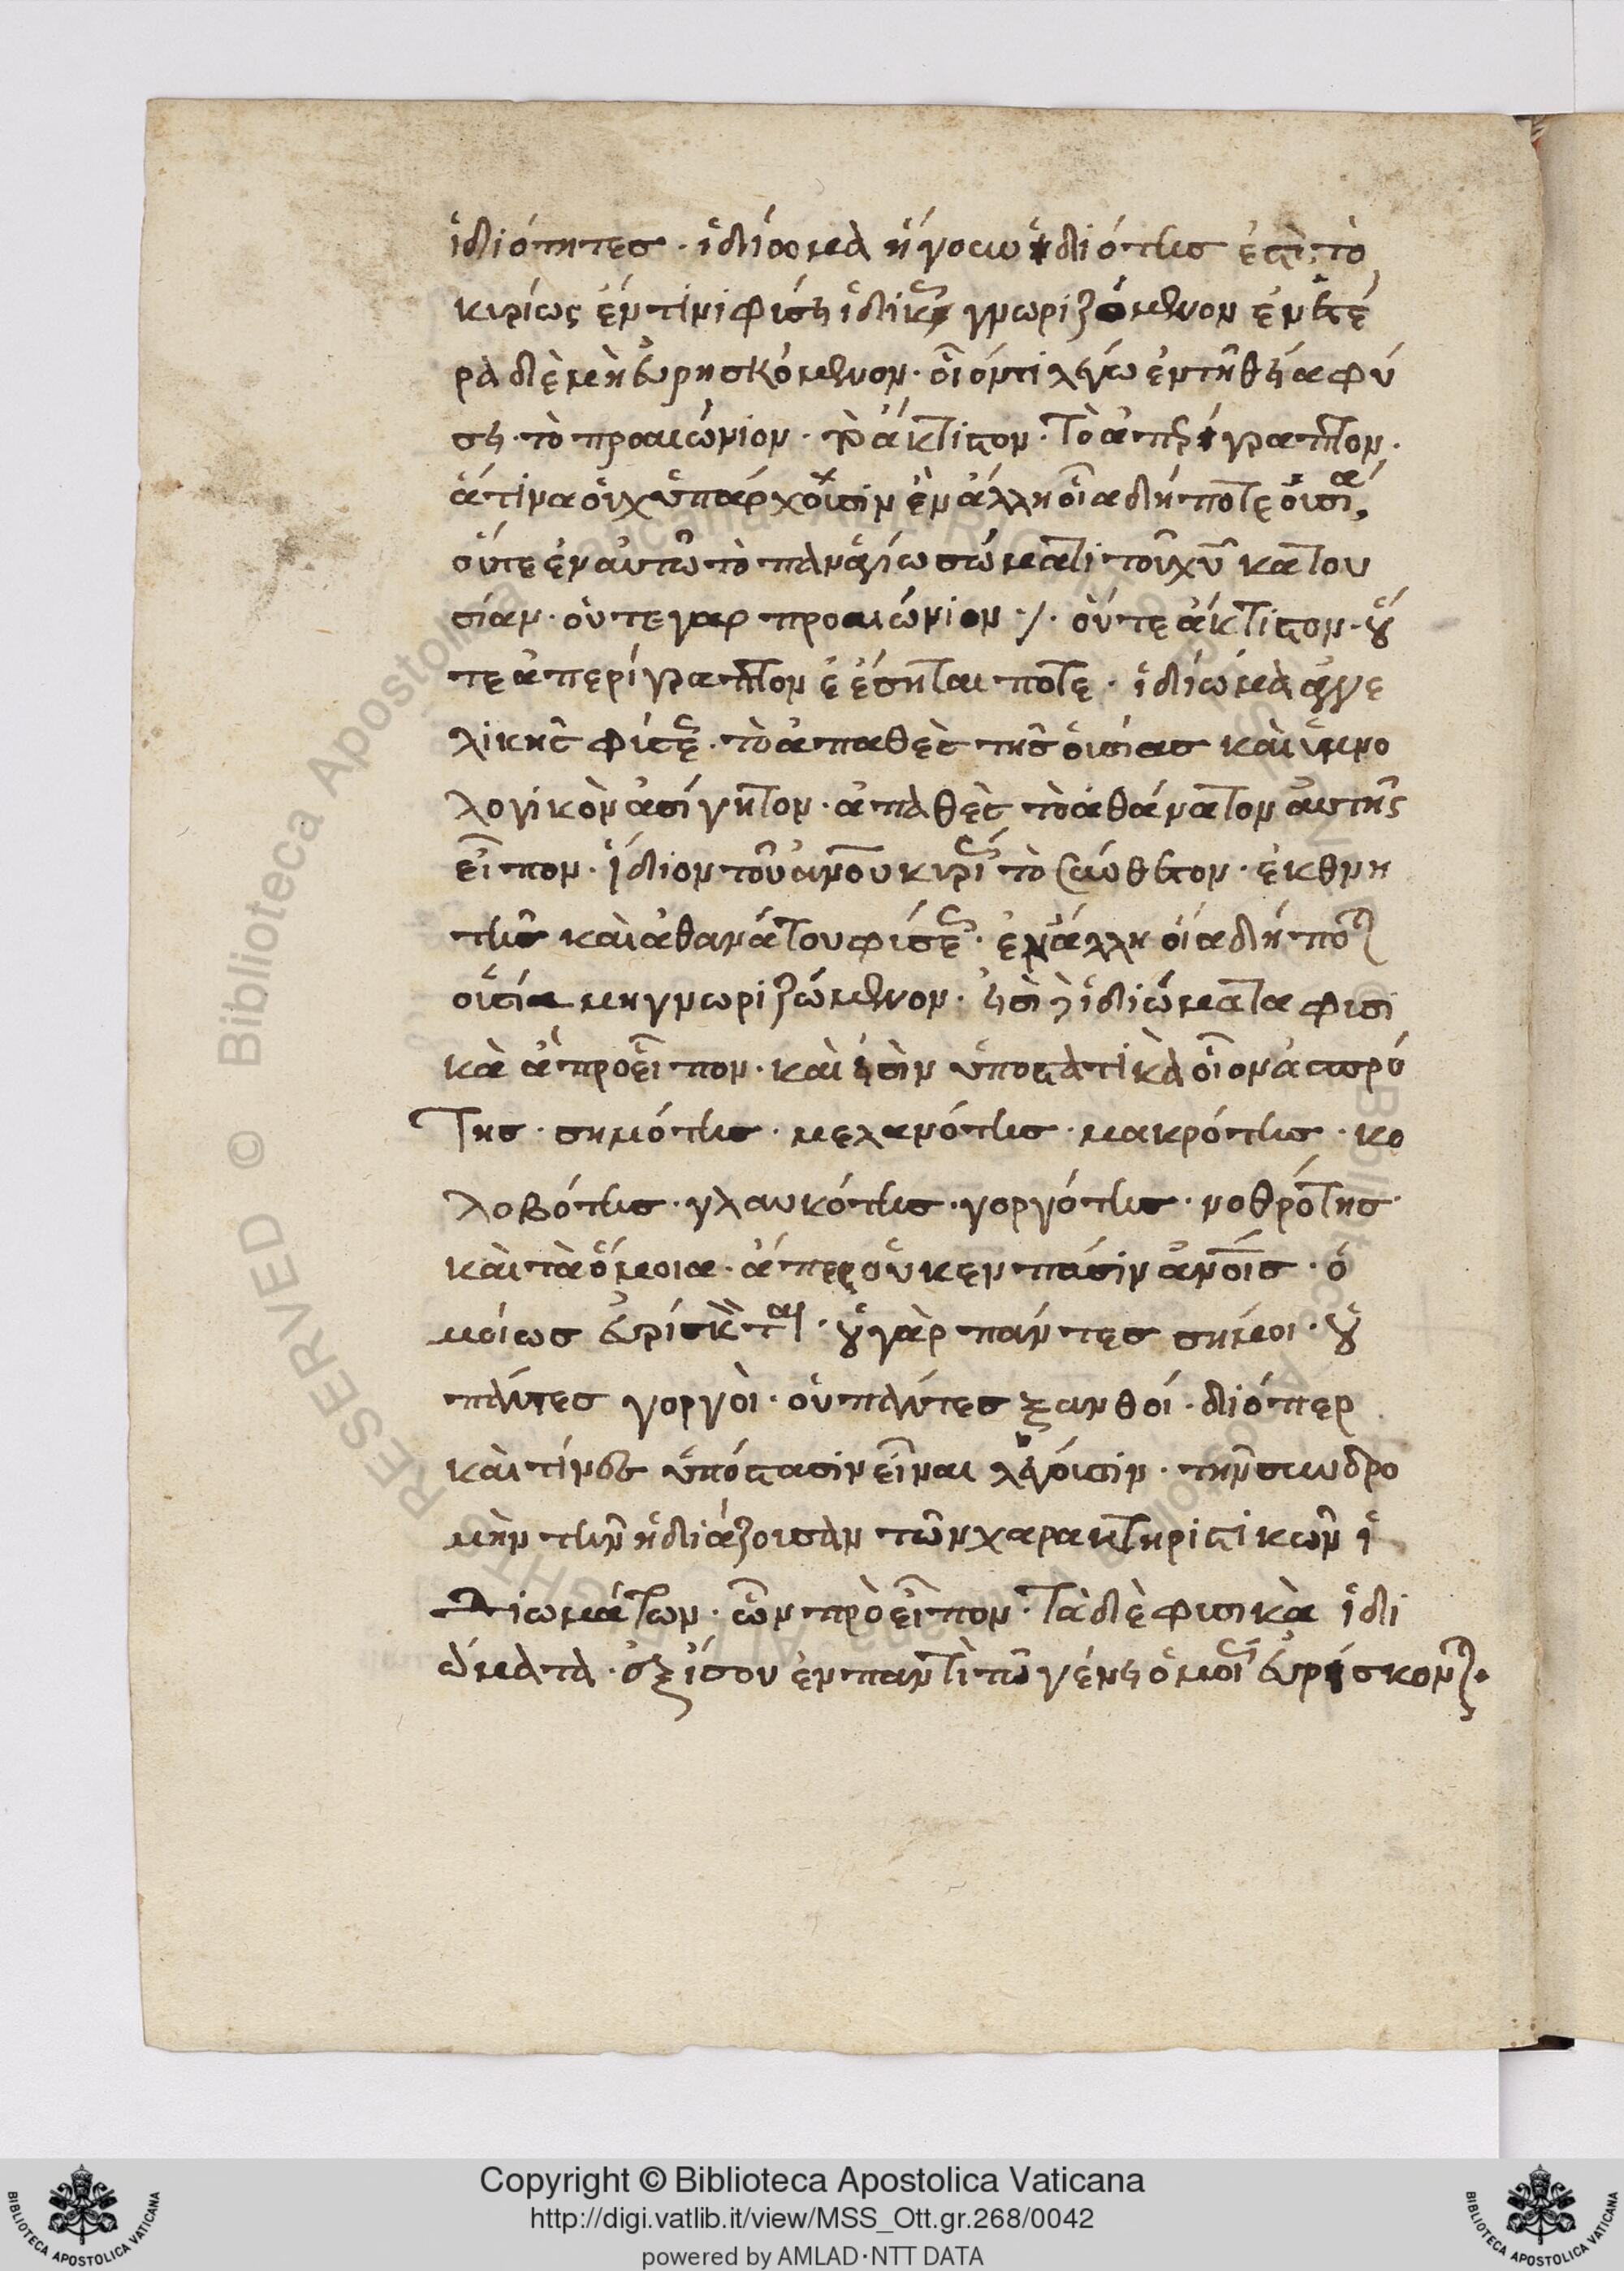 ἰδιότητες · ἰδίομα ἤγουν ἰδιότης ἐστὶ τὸ
κυρίως ἔν τινι φύσει ἰδικῶς γνωριζόμενον ἐν ἑτέ
ρα δὲ μὴ εὑρησκόμενον · οἷον τι λέγω ἐν τῆ θεία φύ
σει · τὸ προαιώνιον · τὸ ἄκτιστον · τὸ ἀπερίγραπτον ·
ἅτινα οὐχ ὑπάρχουσιν ἐν ἄλλη οἱαδήποτε οὐσία,
οὔτε ἐν αὐτῶ τὸ παναγίω σώματι τοῦ χυ κατ ου
σίαν · οὔτε γαρ προαιώνιον ·/· οὔτε ἄκτιστον · οὔ
τε ἀπερίγραπτον ἐέσηται ποτε · ἰδίωμα ἀγγε
λικῆς φύσεως · τὸ ἀπαθὲς τῆς οὐσίας καὶ ὑμνο
λογικὸν ἀσίγητον · ἀπαθὲς τὸ ἀθάνατον αὐτῆς
εἶπον · ἴδιον τοῦ ἀνου κυρίως τὸ σύνθετον · ἐκ θνη
τῆς καὶ ἀθανάτου φύσεως · ἐν ἄλλη οἱαδήποτε
οὐσία μη γνωριζώμενον · εἰσὶ ἰδιώματα φυσι
κὰ ἃ προεῖπον · καὶ εἰσὶν ὑποστατικὰ οἷον ἀσπρό
της · σημότης · μελανότης · μακρότης · κο
λοβότης · γλαυκότης · γοργότης · νοθρότης ·
καὶ τὰ ὅμοια · ἅπερ οὐκ εν πάσιν ἀνοις · ὁ
μοίως εὑρίσκεται · οὐ γὰρ πάντες σημοι · οὐ
πάντες γοργοὶ · οὐ πάντες ξανθοί · διόπερ
καὶ τινὲς ὑπόστασιν εἶναι λέγουσιν · τὴν συνδρο
μὴν τὴν ἠδιάζουσαν τῶν χαρακτηριστικῶν ἰ
διωμάτων · ὧν προεῖπον · τὰ δὲ φυσικὰ ἰδι
ώματα · ἐξίσου ἐν παντὶ τῶ γένει ὁμοίως εὑρίσκονται ·
Copyright © Biblioteca Apostolica Vaticana
http://digi.vatlib.it/view/MSS_Ott.gr.268/0042
powered by AMLAD·NTT DATA